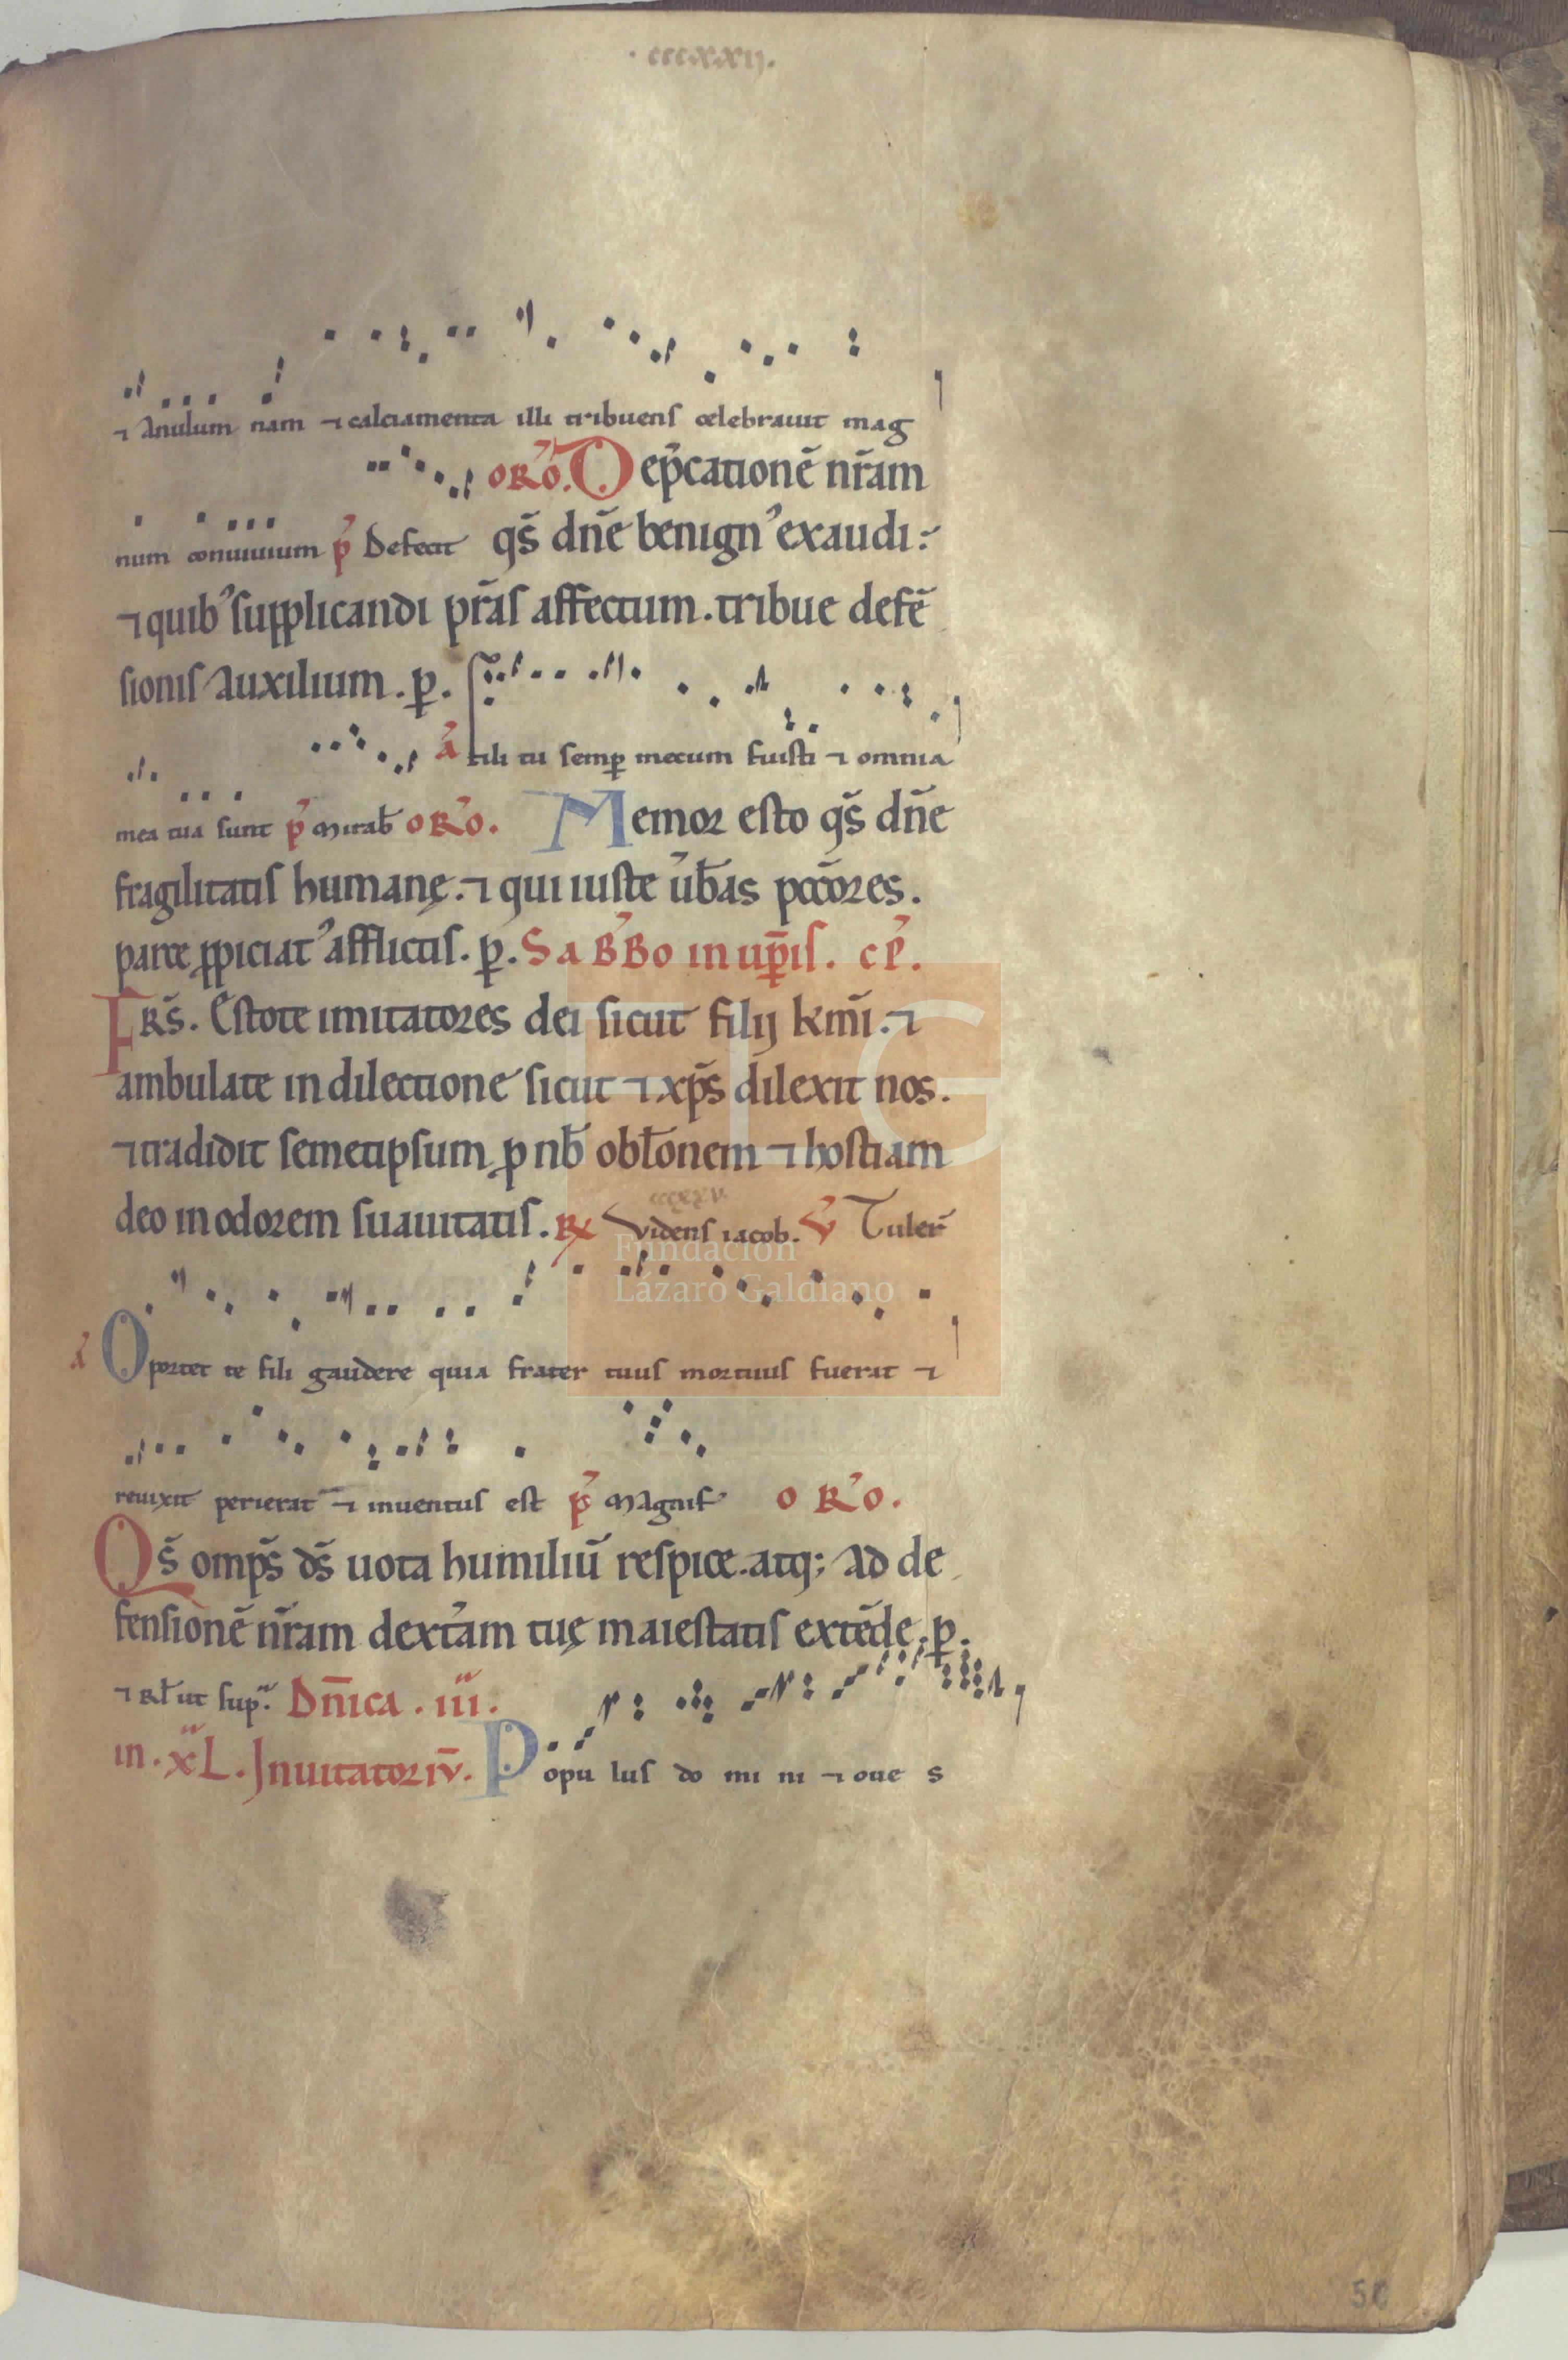 .cccxxij.
⁊ Anulum nam ⁊ calciamenta illi tribuens celebrauit mag
oRo. Dep̄catione̅ nr̄am
num conuiuium p̓ Defecit qs̄ dn̄e benignꝰ exaudi:
⁊ quibꝰ supplicandi pr̄as affectum. tribue defe̅
sionis auxilium. ꝑ.
a̓ fili tu semꝑ mecum fuisti ⁊ omnia
mea tua sunt p̓ Mirab̄ oRo. Memor esto qs̄ dn̄e
fragilitatis humanę. ⁊ qui iuste u̓b̄as pcc̄ores.
parce ꝓpiciatꝰ afflictis. ꝑ. SaB̓Bo in up̄is. cp̓.
FRs̄. Estote imitatores dei sicut filij km̄i. ⁊
ambulate in dilectione sicut ⁊ xp̄s dilexit nos.
⁊ tradidit semetipsum ꝓ nb̄ obl̄onem ⁊ hostiam
cccxxv
deo in odorem suauitatis. ℟ Videns iacob. v̓ Tuler̄
a̓ Oportet te fili gaudere quia frater tuus mortuus fuerat ⁊
reuixit perierat ⁊ inuentus est p̓s Magnif oRo.
Qs̄ omp̄s ds̄ uota humiliu̅ respice. atq; ad de
fensione̅ nr̄am dext̓am tuę maiestatis exte̅de. ꝑ.
⁊ Rl̄ ut sup̄. Dn̄ica . iii.
in . xL . Inuitatoriu̅. Popu lus do mi ni ⁊ oue s
FLG
Fundación
Lázaro Galdiano